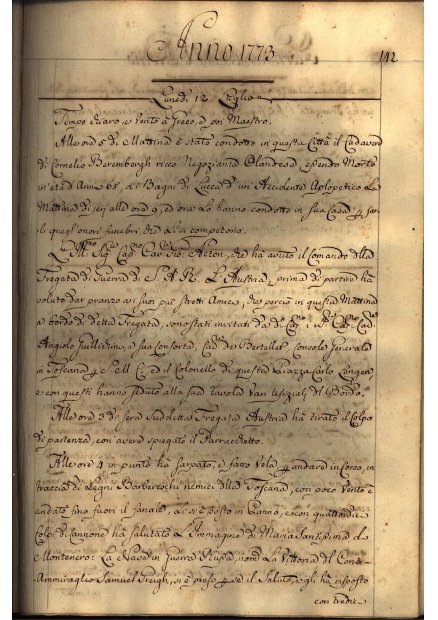 Anno 1773
142
Lunedì 12 Luglio
Tempo chiaro, e vento a Greco, e poi Maestro.
Alle ore 5 di Mattina è stato condotto in questa Città il Cadavere
di Cornelio Berembergh ricco Negoziante Olandese, essendo Morto
in età d'Anni 65, a i Bagni di Lucca d'un Accidente Apopletico La
Mattina di jeri alle ore 9, ed ora Lo hanno condotto in sua Casa per far-
li quegl'onori funebri, che a Lui si competono.
L'Ill.mo Sig.re Cap.no Cav.re Gio. Acton, che ha avuto il Comando della
Fregata di Guerra di S. A. R. L'Austria, prima di partire ha
voluto dar pranzo a i suoi più stretti Amici, che perciò in questa Mattina
a bordo di detta Fregata, sono stati invitati da d.o
Angiolo Guillichini, e sua Consorte, de Bertellet Console Generale
in Toscana per S. M. C., ed il Colonello di questa Piazza Carlo Langen,
e con questi hanno seduto alla sua tavola varj Ufiziali del Bordo.
Alle ore 3 di sera suddetta Fregata Austria ha tirato il Colpo
di partenza, con avere spiegato il Parrucchetto.
Alle ore 4 in punto ha sarpato, e fatto vela per andare in Corso, in
traccia di Legni Barbereschi nemici della Toscana, con poco vento è
andato fino fuori il fanale, e ivi si è posto in Panno, e con quattordici
colpi di Cannone ha salutato L'Immagine di Maria Santissima di
Montenero: La Nave di Guerra Russa, nom. La Vittoria del Cont-
Ammiraglio Samuel Greigh, si è preso per se il Saluto, e gli ha risposto
con tredic-